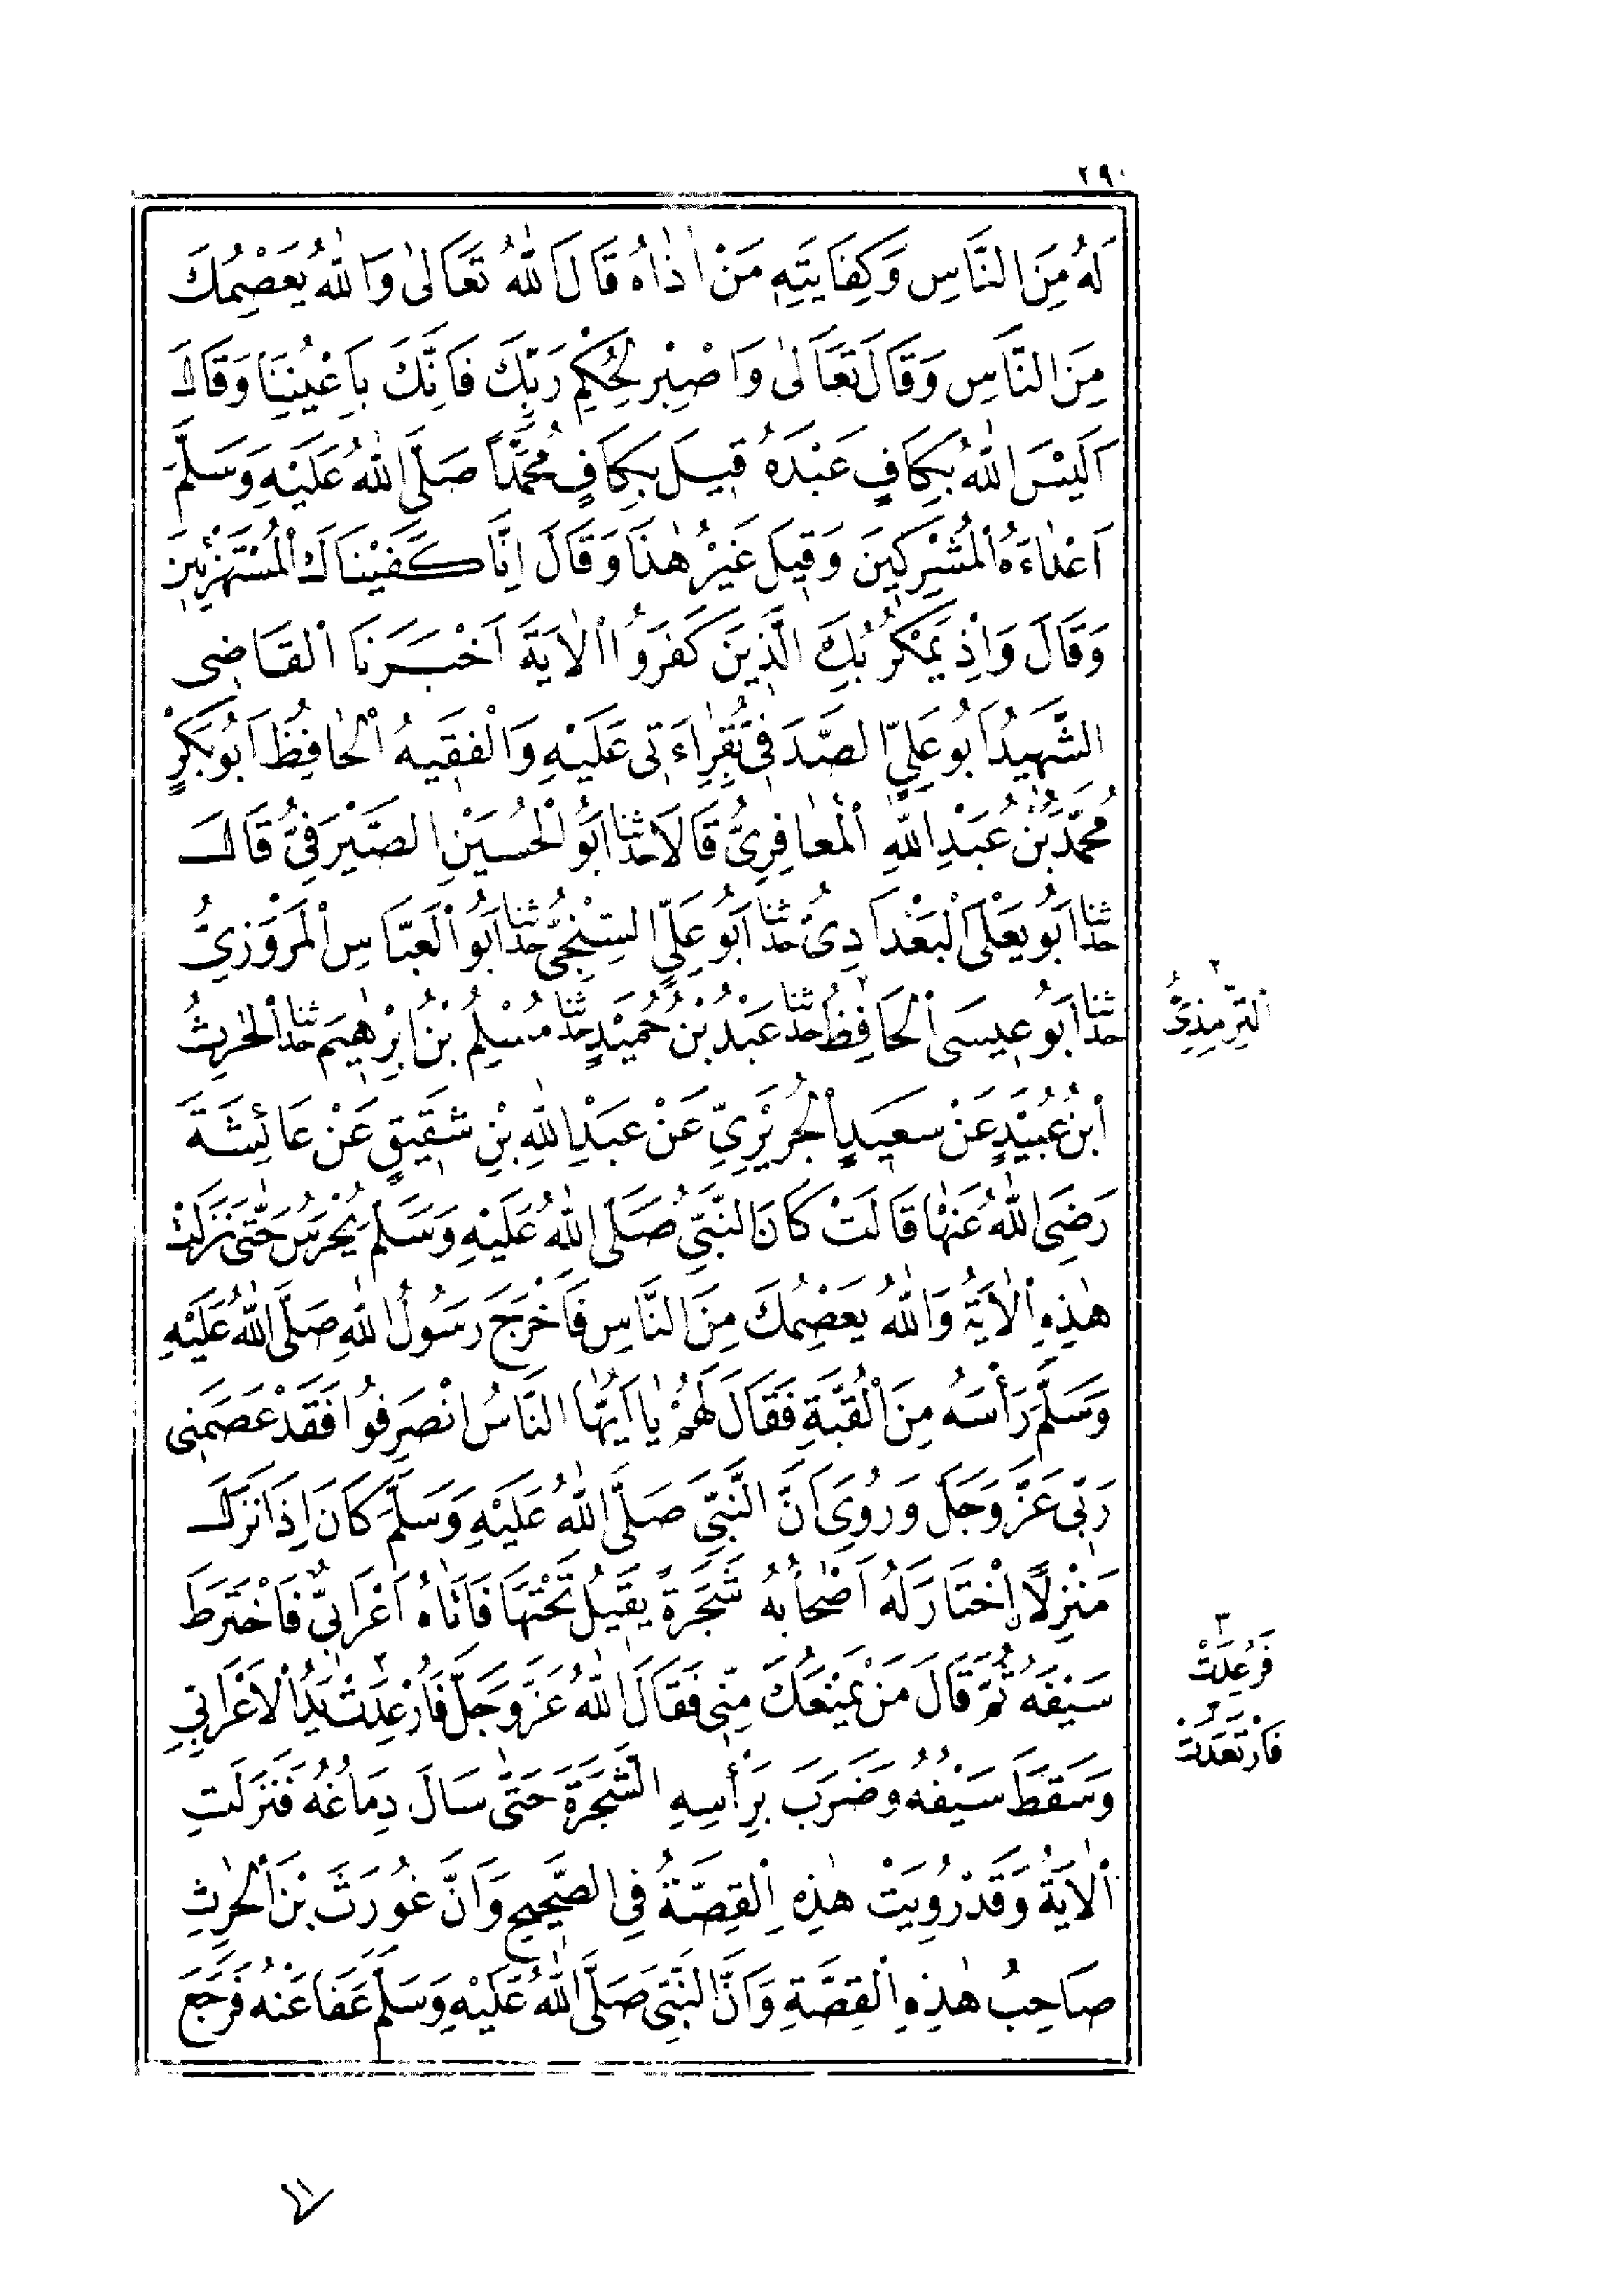 ٢٩٠
لَهُ مِنَ النَّاسِ وَكِفَايَتِهِ مَنْ اٰذَاهُ قَالَ اللّٰهُ تَعَالٰى وَاللّٰهُ يَعْصِمُكَ
مِنَ النَّاسِ وَقَالَ تَعَالٰى وَاصْبِرْ لِحُكْمِ رَبِّكَ فَاِنَّكَ بِاَعْيُنِنَا وَقَالَ
اَلَيْسَ اللّٰهُ بِكَافٍ عَبْدَهُ قِيلَ بِكَافٍ مُحَمَّدًا صَلَّى اللّٰهُ عَلَيْهِ وَسَلَّمَ
اَعْدٰاءَهُ الْمُشْرِكِينَ وَقِيلَ غَيْرُ هٰذَا وَقَالَ اِنَّا كَفَيْنَاكَ الْمُسْتَهْزِئِينَ
وَقَالَ وَاِذْ يَمْكُرُ بِكَ الَّذِينَ كَفَرُوا الْاٰيَةَ اَخْبَرَنَا الْقَاضِى
الشَّهِيدُ اَبُو عَلِيٍّ الصَّدَفِىُّ بِقِرَاءَتِى عَلَيْهِ وَالْفَقِيهُ الْحَافِظُ اَبُو بَكْرٍ
مُحَمَّدُ بْنُ عَبْدِ اللّٰهِ الْمَعَافِرِىُّ قَالَا حدثنا اَبُو الْحُسَيْنِ الصَّيْرَفِىُّ قَالَ
حدثنا اَبُو يَعْلَى الْبَغْدَادِىُّ حدثنا اَبُو عَلِيٍّ السِّنْجِىُّ حدثنا اَبُو الْعَبَّاسِ الْمَرْوَزِىُّ
حدثنا اَبُو عِيسَى الْحَافِظُ ٢ حدثنا عَبْدُ بْنُ حُمَيْدٍ حدثنا مُسْلِمُ بْنُ اِبْرٰهِيمَ حدثنا الْحٰرِثُ
ابْنُ عُبَيْدٍ عَنْ سَعِيدٍ الْجُرَيْرِىِّ عَنْ عَبْدِ اللّٰهِ بْنِ شَقِيقٍ عَنْ عَائِشَةَ
رَضِىَ اللّٰهُ عَنْهَا قَالَتْ كَانَ النَّبِىُّ صَلَّى اللّٰهُ عَلَيْهِ وَسَلَّمَ يُحْرَسُ حَتّٰى نَزَلَتْ
هٰذِهِ الْاٰيَةُ وَاللّٰهُ يَعْصِمُكَ مِنَ النَّاسِ فَاَخْرَجَ رَسُولُ اللّٰهِ صَلَّى اللّٰهُ عَلَيْهِ
وَسَلَّمَ رَأْسَهُ مِنَ الْقُبَّةِ فَقَالَ لَهُمْ يَا اَيُّهَا النَّاسُ انْصَرِفُوا فَقَدْ عَصَمَنِى
رَبِّى عَزَّ وَجَلَّ وَرُوِىَ اَنَّ النَّبِىَّ صَلَّى اللّٰهُ عَلَيْهِ وَسَلَّمَ كَانَ اِذَا نَزَلَ
مَنْزِلًا اِخْتَارَ لَهُ اَصْحَابُهُ شَجَرَةً يَقِيلُ تَحْتَهَا فَاَتَاهُ اَعْرَابِىٌّ فَاخْتَرَطَ
سَيْفَهُ ثُمَّ قَالَ مَنْ يَمْنَعُكَ مِنِّى فَقَالَ اللّٰهُ عَزَّ وَجَلَّ فَاُرْعِدَتْ ٣ يَدُ الْاَعْرَابِىِّ
وَسَقَطَ سَيْفُهُ وَضَرَبَ بِرَأْسِهِ الشَّجَرَةَ حَتّٰى سَالَ دِمَاغُهُ فَنَزَلَتِ
الْاٰيَةُ وَقَدْ رُوِيَتْ هٰذِهِ الْقِصَّةُ فِى الصَّحِيحِ وَاَنَّ غَوْرَثَ بْنَ الْحٰرِثِ
صَاحِبُ هٰذِهِ الْقِصَّةِ وَاَنَّ النَّبِىَّ صَلَّى اللّٰهُ عَلَيْهِ وَسَلَّمَ عَفَا عَنْهُ فَرَجَعَ
٢
اَلتِّرْمِذِىُّ
٣
فَرُعِدَتْ
٣
فَارْتَعَدَتْ